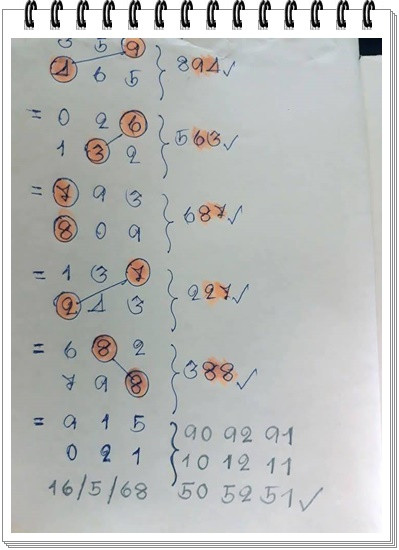 3 5 9
4 6 5 } 894✓
= 0 2 6
1 3 2 } 563✓
= 7 9 3
8 0 9 } 687✓
= 1 3 7
2 4 3 } 227✓
= 6 8 2
7 9 8 } 388✓
= 9 1 5 } 90 92 91
0 2 1 10 12 11
16/5/68 50 52 51✓